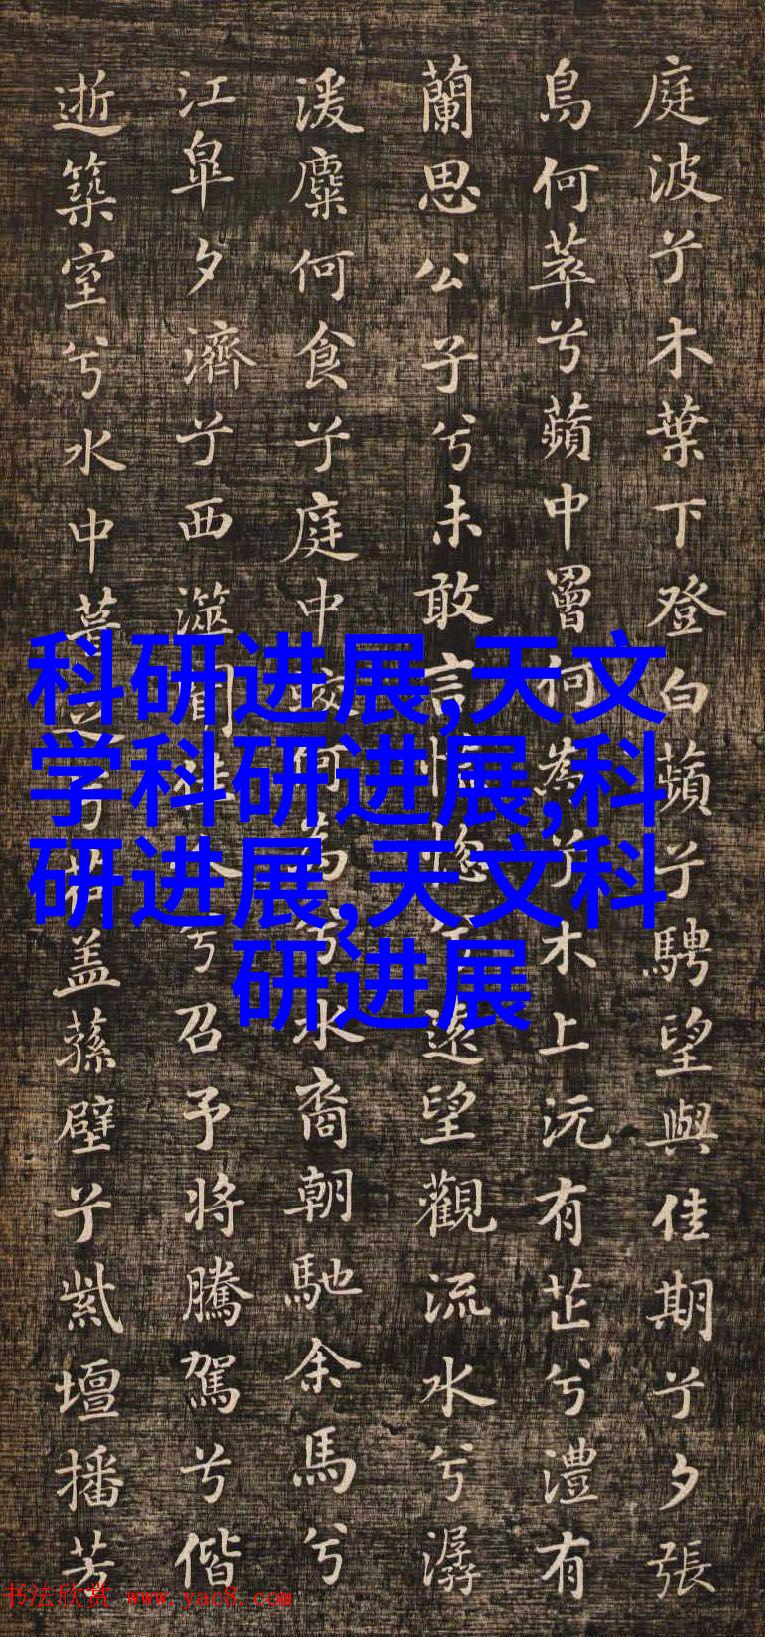 庭波兮木葉下登白蘋兮騁望與佳期兮夕張
鳥何萃兮蘋中罾何為兮木上沅有芷兮澧有
蘭思公子兮未敢言怳惚兮遠望觀流水兮潺
湲麋何食兮庭中蛟何為兮水裔朝馳余馬兮
江皐夕濟兮西澨聞佳人兮召予將騰駕兮偕
逝築室兮水中葺之兮蓋蓀壁兮紫壇播芳
科研进展,天文
学科研进展,科
研进展,天文科
研进展
书法欣赏 www.yac8.com